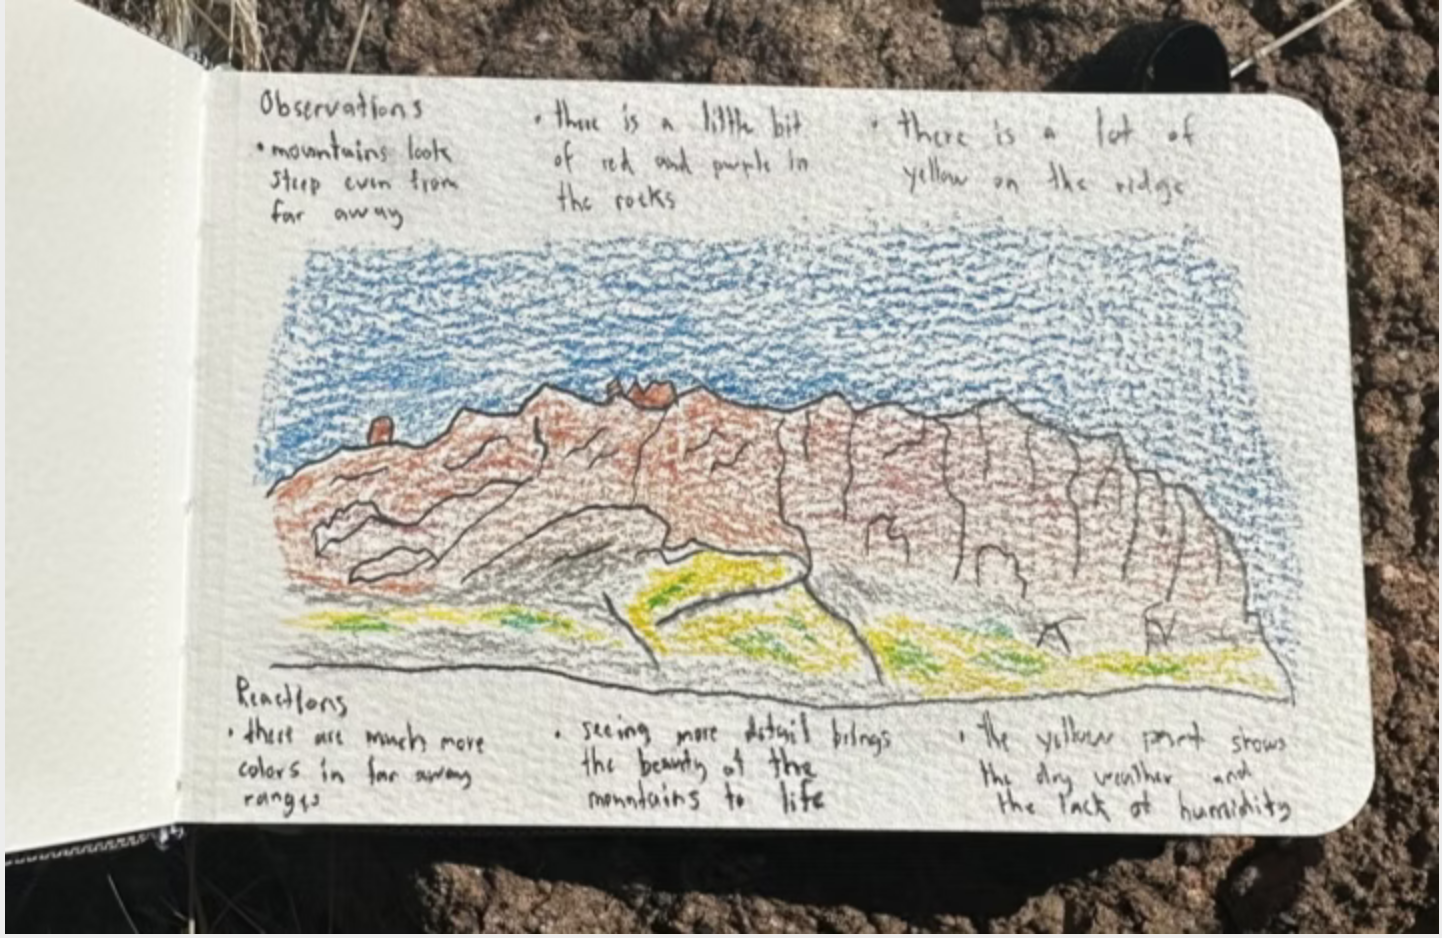 Observations
• mountains look
steep even from
far away
• there is a little bit
of red and purple in
the rocks
• there is a lot of
yellow on the ridge
Reactions
• there are much more
colors in far away
ranges
• seeing more detail brings
the beauty of the
mountains to life
• the yellow part shows
the dry weather and
the lack of humidity